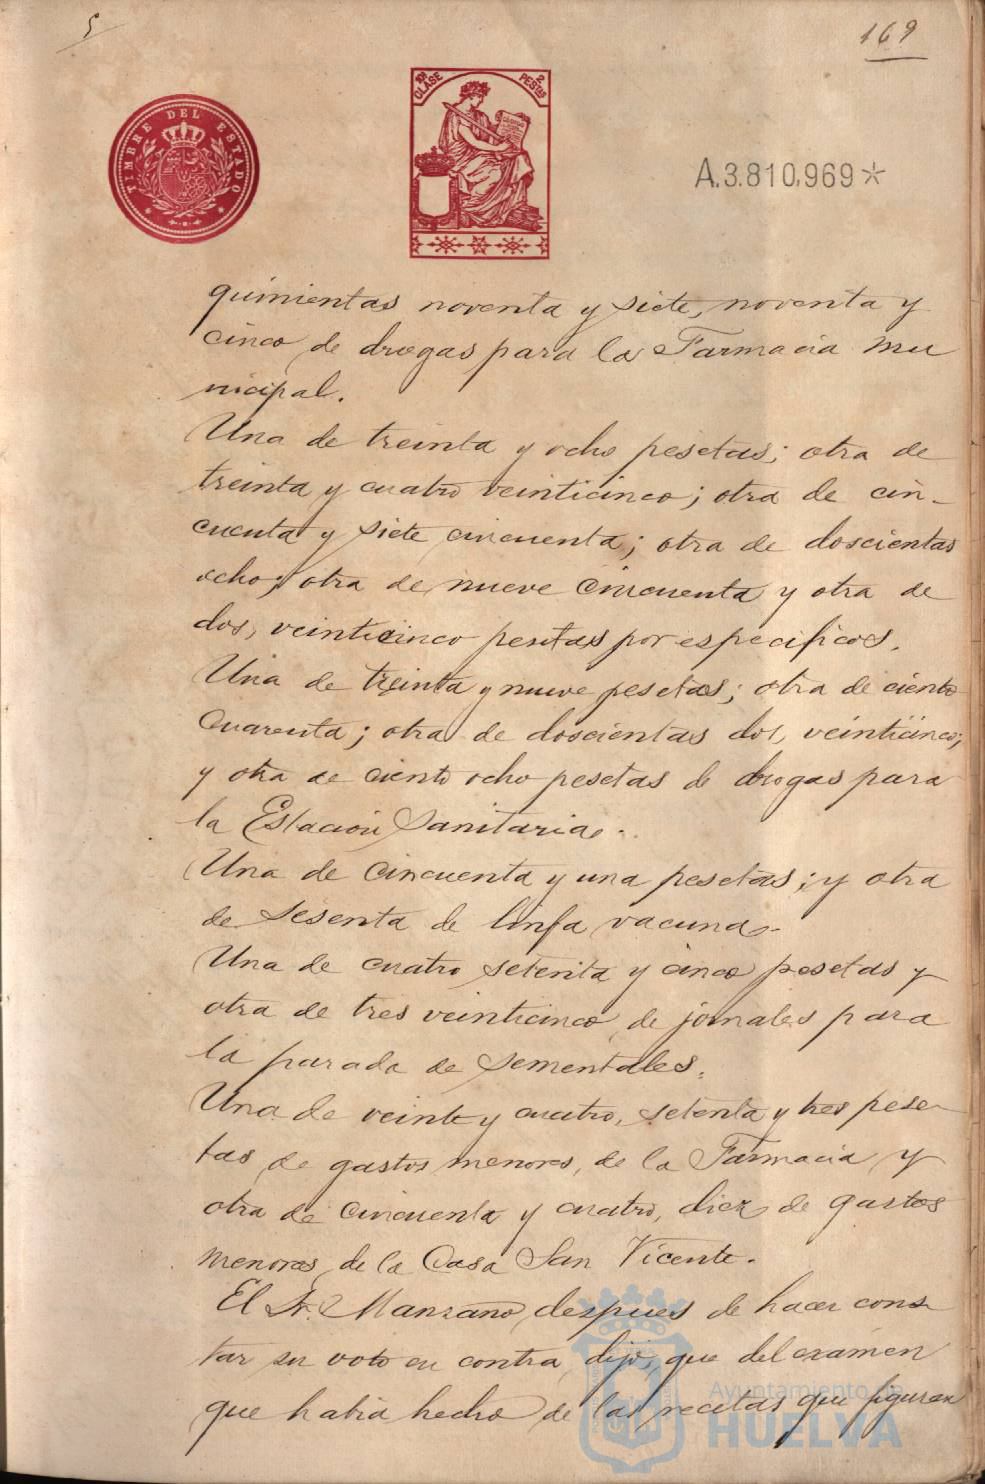 5
169
TIMBRE DEL ESTADO
10ª CLASE
2 PESTAS
A.3.810.969*
quinientas noventa y siete, noventa y
cinco de drogas para la Farmacia mu
nicipal.
Una de treinta y ocho pesetas; otra de
treinta y cuatro veinticinco; otra de cin-
cuenta y siete cincuenta; otra de doscientas
ocho; otra de nueve cincuenta y otra de
dos, veinticinco pesetas por especificos.
Una de treinta y nueve pesetas; otra de ciento
cuarenta; otra de doscientas dos, veinticinco;
y otra de ciento ocho pesetas de drogas para
la Estación Sanitaria.
Una de cincuenta y una pesetas; y otra
de sesenta de linfa vacuna.
Una de cuatro setenta y cinco pesetas y
otra de tres veinticinco, de jornales para
la parada de sementales.
Una de veinte y cuatro, setenta y tres pese-
tas, de gastos menores, de la Farmacia y
otra de cincuenta y cuatro, diez de gastos
menores, de la Casa San Vicente.
El Sr. Manzano, despues de hacer cons
tar su voto en contra, dijo, que del examen
que habia hecho de las recetas que figuran
Ayuntamiento de
HUELVA